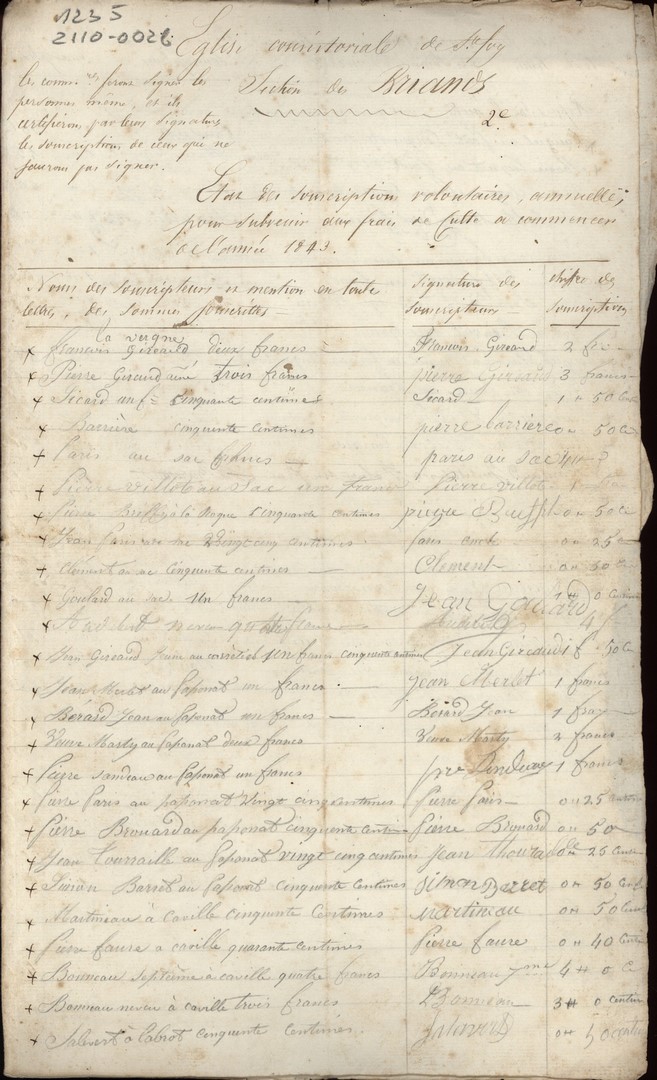 1235
2110-0026
Eglise consistoriale de Ste foy
Section des Briands
2e
les comm.res feront signer les
personnes même, et ils
certifieront par leurs signatures
les souscriptions de ceux que ne
sauront pas signer.
Etat des souscriptions volontaires, annuelles,
pour subvenir aux frais de Culte a commencer
de l'année 1843.
Noms des souscripteurs et mention en toute
lettres, des sommes souscrites
signature des
souscripteurs
chiffre des
souscriptions
la vergne
x François Giraud deux francs François Giraud 2 fr
x Pierre Giraud ainé trois francs pierre Giraud 3 francs
x Sicard un f = Cinquante centimes Sicard 1 " 50
x Barrière cinquante centimes pierre barrière 0 " 50
+ Paris au sac francs paris au sac
+ Pierre villot au Sac un franc Pierre villot 1
x Cinquante centimes pierre 0 " 50
x Jean Paris au sac Vingt cinq centimes paris 0 " 25
+ Clément au sac Cinquante centimes Clement 0 " 50
+ Goulard au sac Un francs Jean Goulard 1 " 0
x neveu quatre francs 4 f
x Jean Giraud Jeune au Un franc cinquante centimes Jean Giraud 1 f 50
x Jean Merlet au Paponat un franc Jean Merlet 1 francs
x Bérard Jean au Paponat un francs Bérard Jean 1 franc
+ Veuve Marty au Paponat deux francs Veuve Marty 2 francs
x Pierre au Paponat un francs pre 1 francs
x Pierre Paris au paponat Vingt cinq centimes Pierre Paris 0 " 25
+ Pierre Brouard au paponat cinquente centimes Pierre Brouard 0 " 50
x Jean Tourraille au Paponat Vingt cinq centimes Jean 0 " 25
x Barret au Paponat cinquante Centimes Simon Barret 0 " 50
x Martineau à caville cinquente Centimes martineau 0 " 50
x Pierre faure a caville quarante centimes Pierre faure 0 " 40
x Bonneau septième à caville quatre francs Bonneau 7me 4 " 0 c
x Bonneau neveu à caville trois francs Bonneau 3 " 0
x Jalvert à Labrot cinquente Centimes. Jalvert 0 " 50